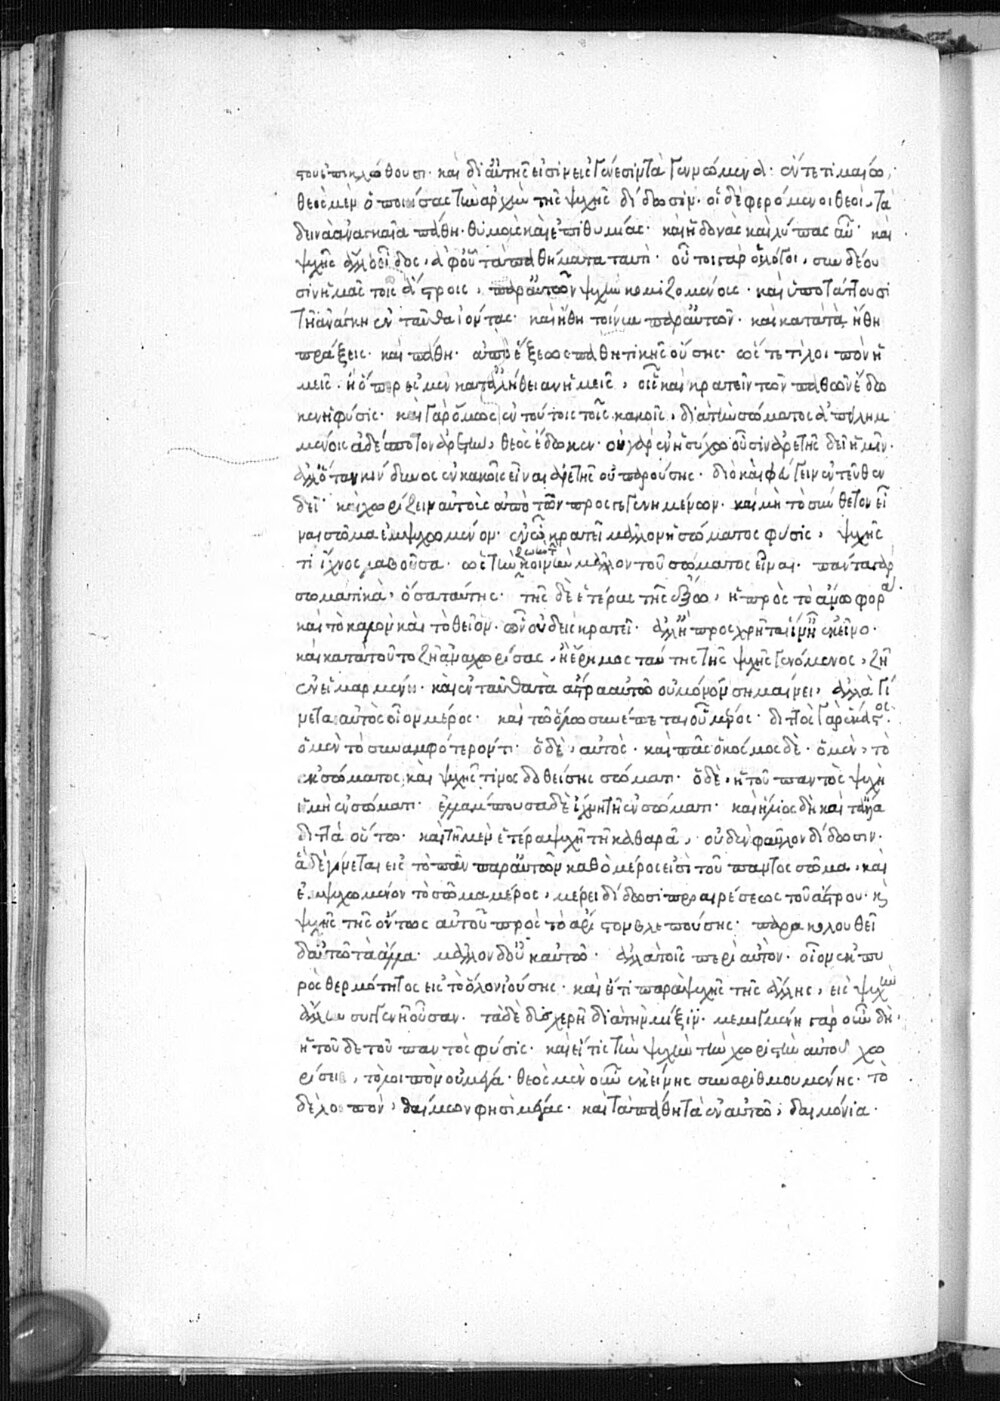 τοῦ ἐπικλώθουσι· καὶ δι' αὐτῆς εἴσιν εἰς γένεσιν τὰ γεννώμενα· ἔν τε τιμαίω,
θεὸς μὲν ὁ ποιήσας τὴν ἀρχὴν τῆς ψυχῆς δίδωσιν· οἱ δὲ φερόμενοι θεοὶ, τὰ
δεινὰ ἀναγκαῖα πάθη· θυμοὺς καὶ ἐπιθυμίας· καὶ ἡδονὰς καὶ λύπας αὖ· καὶ
ψυχῆς ἄλλο εἶδος, ἀφ' οὗ τὰ παθήματα ταυτί· οὗτοι γὰρ οἱ λόγοι, συνδέου
σιν ἡμᾶς τοῖς ἄστροις, παρ' αὐτῶν ψυχὴν κομιζομένους· καὶ ὑποτάττουσι
τῇ ἀνάγκη ἐνταῦθα ἰόντας· καὶ ἤθη τοίνυν παρ' αὐτῶν· καὶ κατὰ τὰ ἤθη
πράξεις· καὶ πάθη· ἀπὸ ἕξεως παθητικῆς οὔσης· ὥστε τί λοιπὸν ἡ
μεῖς· ἢ ὅπερ ἐσμὲν κατ' ἀλήθειαν ἡμεῖς, οἷς καὶ κρατεῖν τῶν παθῶν ἔδω
κεν ἡ φύσις· καὶ γὰρ ὅμως ἐν τούτοις τοῖς κακοῖς, διὰ τὴν σώματος ἀπειλημ
μένοις ἀδέσποτον ἀρετὴν, θεὸς ἔδωκεν· οὐ γὰρ ἐν ἡσύχω οὖσιν ἀρετῆς δεῖ ἡμῖν·
ἀλλ' ὅταν κίνδυνος ἐν κακοῖς εἶναι ἀρετῆς οὐ παρούσης· διὸ καὶ φεύγειν ἐντεῦθεν
δεῖ· καὶ χωρίζειν αὐτοὺς ἀπὸ τῶν προσγεγενημένων· καὶ μὴ τὸ σύνθετον εἶ
ναι σῶμα ἐμψυχωμένον· ἐν ᾧ κρατεῖ μᾶλλον ἡ σώματος φύσις, ψυχῆς
τὶ ἴχνος λαβοῦσα· ὡς τὴν ζωὴν τὴν κοινὴν μᾶλλον τοῦ σώματος εἶναι· πάντα γὰρ
σωματικὰ, ὅσα ταύτης· τῆς δὲ ἑτέρας τῆς ἔξω, ἡ πρὸς τὸ ἄνω φορὰ·
καὶ τὸ καλὸν καὶ τὸ θεῖον· ὧν οὐδεὶς κρατεῖ· ἀλλ' ἢ προσχρῆται ἵν' ᾖ ἐκεῖνο·
καὶ κατὰ τοῦτο ζῇ ἀναχωρήσας, ἢ ἔρημος ταύτης τῆς ψυχῆς γενόμενος, ζῇ
ἐν εἱμαρμένη· καὶ ἐνταῦθα τὰ ἄστρα αὐτῶ οὐ μόνον σημαίνει, ἀλλὰ γί
νεται αὐτὸς οἷον μέρος· καὶ τῶ ὅλω συνέπεται οὗ μέρος· διττὸς γὰρ ἕκαστος·
ὁ μὲν τὸ συναμφότερόν τι· ὁ δὲ, αὐτὸς· καὶ πᾶς ὁ κόσμος δὲ· ὁ μὲν, τὸ
ἐκ σώματος καὶ ψυχῆς τινος δεθείσης σώματι· ὁ δὲ, ἡ τοῦ παντὸς ψυχὴ
ἡ μὴ ἐν σώματι· ἐλλάμπουσα δὲ ἴχνη τῇ ἐν σώματι· καὶ ἥλιος δὴ καὶ τἄλλα
διττὰ οὕτω· καὶ τῇ μὲν ἑτέρα ψυχῇ τῇ καθαρᾶ, οὐδὲν φαῦλον δίδωσιν·
ἃ δὲ γίνεται εἰς τὸ πᾶν παρ' αὐτῶν καθὸ μέρος εἰσὶ τοῦ παντὸς σῶμα, καὶ
ἐμψυχωμένον τὸ σῶμα μέρος, μέρει δίδωσι προαιρέσεως τοῦ ἄστρου· καὶ
ψυχῆς τῆς ὄντως αὐτοῦ πρὸς τὸ ἄριστον βλεπούσης· παρακολουθεῖ
δ' αὐτῶ τὰ ἄλλα· μᾶλλον δ' οὐκ αὐτῶ· ἀλλὰ τοῖς περὶ αὐτὸν· οἷον ἐκ πυ
ρὸς θερμότητος εἰς τὸ ὅλον ἰούσης· καὶ εἴ τι παρὰ ψυχῆς τῆς ἄλλης, εἰς ψυχὴν
ἄλλην συγγενῆ οὖσαν· τὰ δὲ δυσχερῆ διὰ τὴν μίξιν· μεμιγμένη γὰρ οὖν δὴ·
ἡ τοῦδε τοῦ παντὸς φύσις· καὶ εἴ τις τὴν ψυχὴν τὴν χωριστὴν αὐτοῦ χω
ρίσειε, τὸ λοιπὸν οὐ μέγα· θεὸς μὲν οὖν ἐκείνης συναριθμουμένης· τὸ
δὲ λοιπὸν, δαίμων φησὶ μέγας· καὶ τὰ πάθη τὰ ἐν αὐτῶ, δαιμόνια·